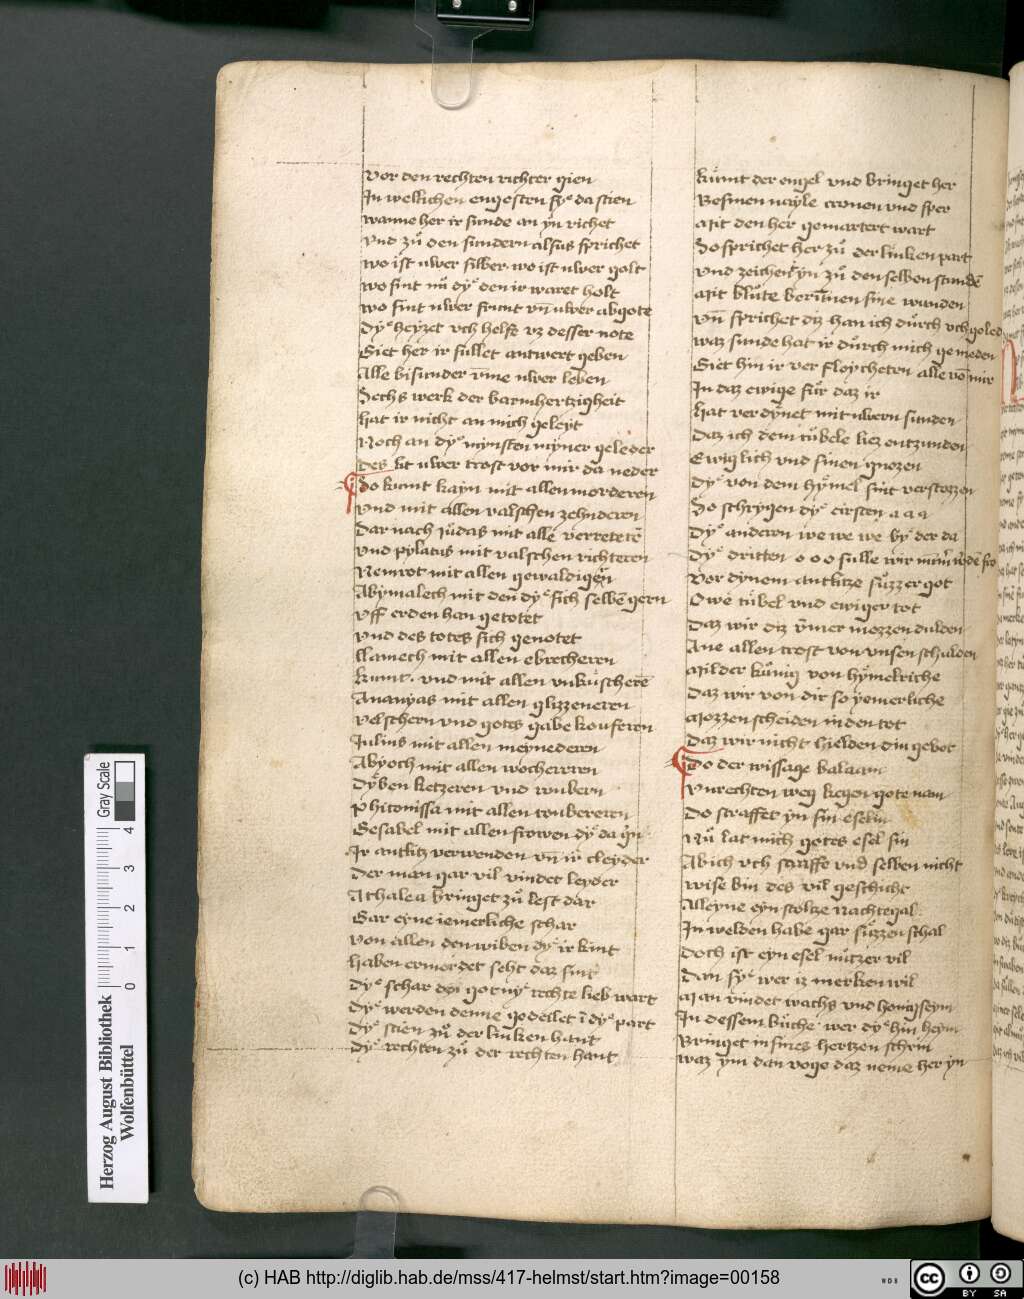 Vor den rechten richter gien
In welichen engesten sye da stien
wanne her ir sunde an yn richet
Vnd zů den sundern alsus sprichet
wo ist uwer silber wo ist uwer golt
wo sint nů dye den ir waret holt
wo sint uwer frunt vn̄ uwer abgote
Dye heyzet vch helfe vz desser note
Siet her ir sullet antwert geben
Alle bisunder v̄me uwer leben
Sechs werk der barmhertzigheit
hat ir nicht an mich geleyt
Noch an dye mynsten myner geleder
Des lit uwer trost vor mir da neder
So kumt kayn mit allen morderen
Vnd mit allen valschen zehnderen
Dar nach iůdas mit alle verretern̄
Vnd pylatus mit valschen richteren
Nemrot mit allen gewaldigen
Abymalech mit den dye sich selbē gern
Vff erden han getotet
Vnd des totes sich genotet
Llamech mit allen ebrecheren
kumt. vnd mit allen vnkůscherē
Ananyas mit allen glizzeneren
Velschern vnd gotes gabe kouferen
Julius mit allen meynederen
Abyoch mit allen wocherern
Dyben ketzeren vnd roubern
Phitonissa mit allen zoubereren
Gesabel mit allen frowen dye da
Ir antlitz verwenden vn̄ ir cleyder
Der man gar vil vindet leyder
Athalea bringet zů lest dar
Gar eyne iemerliche schar
Von allen den wiben dye ir kint
haben ermordet seht daz sint
Dye schar dyi got nye rechte lieb wart
Dye werden denne gedeilet ī dye part
Dye stien zů der linken hant
Dye rechten zů der rechten hant
kůmt der engel vnd bringet her
Besmen nayle cronen vnd sper
Mit den her gemartert wart
So sprichet her zů der linken part
Vnd zeichent yn zů den selben stundē
Mit blůte berunnen sine wunden
Vn̄ sprichet diz han ich důrch vch geled
waz sunde hat ir důrch mich gemeden
Giet hin ir ver floycheten alle vō mir
In daz ewige fůr daz ir
hat verdynet mit uwern sunden
Daz ich dem tůbele liez entzunden
Ewiglich vnd sinen gnozen
Dye von dem hymel sint verstozzen
So schrygen dye eirsten a a a
Dye anderen we we we by der da
Dye dritten o o o sulle wir
Vor dynem antlitze sůzzer got
Owe tůbel vnd ewiger tot
Daz wir diz ymer mozzen dulden
Ane allen trost von vnsen schulden
Milder kůnig von hymelriche
Daz wir von dir so yemerliche
Mozzen scheiden in den tot
Daz wir nicht hielden din gebot
Do der wissage balaam
Vnrechten weg kegen gote nam
Do straffet yn sin eselin
Nů lat mich gotes esel sin
Ab ich vch straffe vnd selben nicht
wise bin des vil geschicht
Alleyne eyn stoltze nachtegal
In welden habe gar sůzzen schal
Doch ist eyn esel nůtzer vil
Dan sye wer iz merken wil
Man vindet wachs vnd honigseym
In dessem bůche wer dye hin heym
Bringet in sines hertzen schrin
waz ym dan voge daz neme her yn
Herzog August Bibliothek
Wolfenbüttel
Gray Scale
0 1 2 3 4
(c) HAB http://diglib.hab.de/mss/417-helmst/start.htm?image=00158
WDB
cc
BY SA